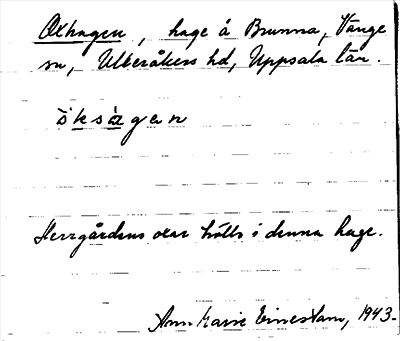 Oxhagen, hage å Brunna, Vänge
sn, Ulleråkers hd, Uppsala län.
Herrgårdens oxar hölls i denna hage.
Ann Marie Einestam, 1943.